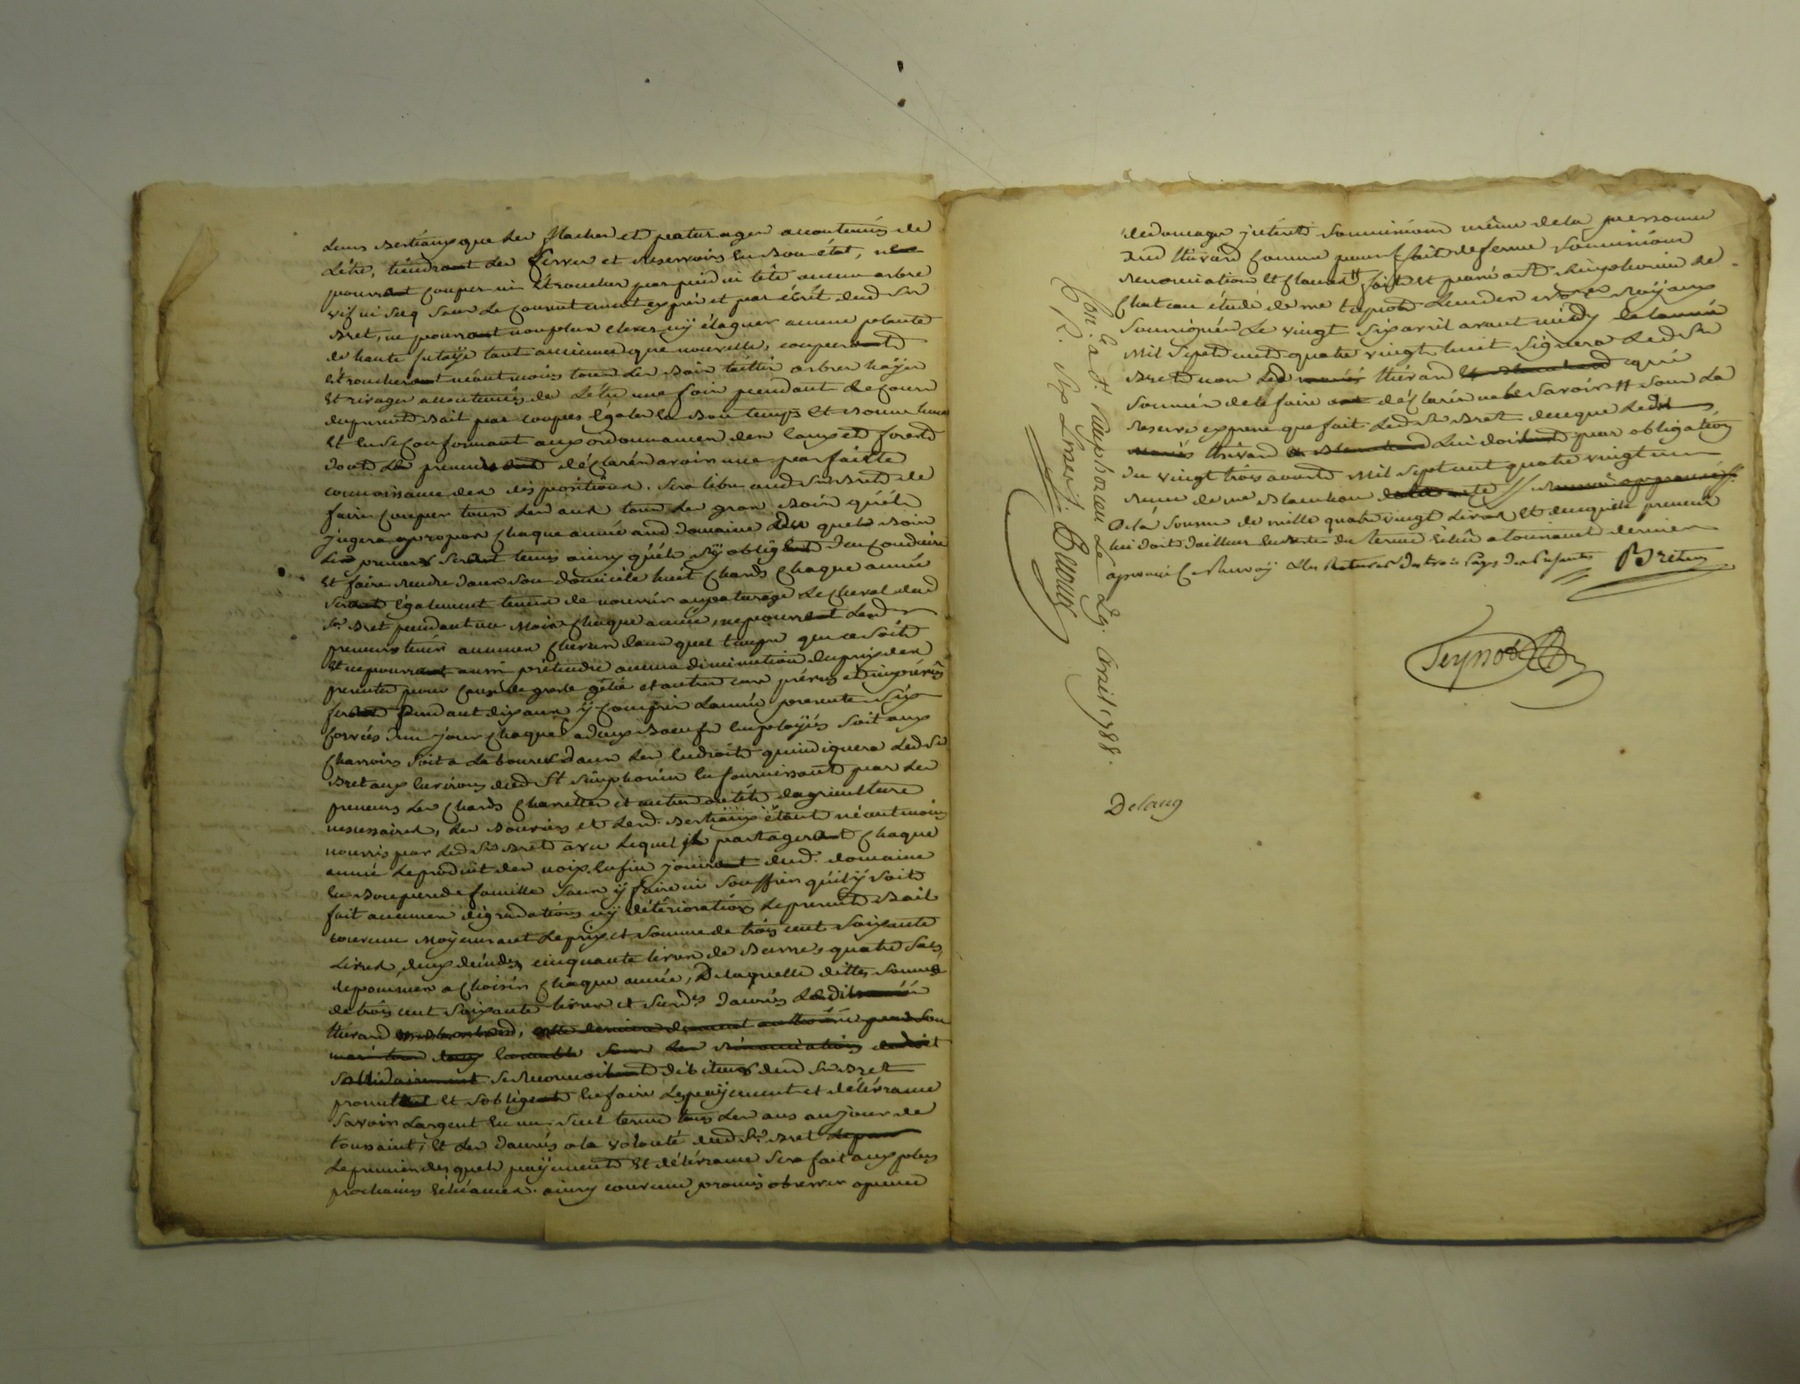 leurs Bestiaux que les flaches et paturages accoutumés de
l'être, tiendront les serves et reservoirs en Bon état, ne
pourront couper ni étroncher par pied ni tête aucun arbre
vif ni secq sans le consentement exprès et par écrit dud Sr
Bret, ne pourront non plus elaver ny élaguer aucune plante
de haute futaye tant ancienne que nouvelle, couperont
étroncheront néantmoins tous les Bois taillis arbres hayes
et rivages accoutumés de l'être une fois pendant le cours
du present Bail par coupes égales en Bon temps et Bonne lune
et en se conformant aux ordonnances des eaux et forests
dont le preneur déclare avoir une parfaitte
connoissance des dispositions. sera libre aud Sr Bret de
faire couper tous les ans tous les gros Bois qu'il
jugera apropos chaque année aud domaine desquels Bois
les preneurs seront tenus ainsy qu'ils s'y obligent d'en conduire
et faire rendre dans son domicile huit chards chaque année
seront également tenus de nourrir au paturage le cheval dud
Sr Bret pendant un Mois chaque année, ne pourront lesd
preneurs tenir aucunes chevres dans quel temps que ce soit
et ne pourront aussi prétendre aucune diminution du prix des
presentes pour cause de grele gélée et autres cas prévus et imprévûs
feront pendant dix ans y compris l'année presente six
corvées d'un jour chaque a deux Bœufs employés soit aux
charrois soit a labourer dans les endroits qu'indiquera led Sr
Bret aux environs dud St Simphorien en fournissant par les
preneurs les chards charettes et autres outils d'agriculture
necessaires, les Bouviers et lesd. Bestiaux étant néantmoins
nourris par led Sr Bret avec lequel ils partageront chaque
année le produit des noix. enfin jouiront dud. domaine
en Bon pere de famille sans y faire ni souffrir qu'il y soit
fait aucunes dégradations ny détériorations le present Bail
convenu Moyennant le prix et somme de trois cent soixante
Livres, deux deindes, cinquante livres de Beurre, quatre sacs
de pommes a choisir chaque année, De laquelle ditte somme
de trois cent soixante livres et susds danrés ledit
thivard
solidairement se reconnoit débiteur dud Sr Bret
promet et s'oblige en faire le payement et délivrance
savoir l'argent en un seul terme tous les ans au jour de
toussaint, et les danrés a la volonté dud Sr Bret
le premier desquels payements et délivrance sera fait aux plus
prochaines échéances. ainsy convenu promis observer apeine
de domages interets soumissions même de la personne
dud thivard comme pour fait de ferme soumissions
renonciations et clauses fait et passé a St Simphorien le
chateau étude de me teynot l'un des nores royaux
soussignés le vingt six avril avant midy l'année
mil sept cent quatre vingt huit signera led Sr
Bret non led mariés thivard et Blanchard qui
sommés de le faire ont déclaré ne le savoir sous la
reserve expresse que fait led Sr Bret de ce que ledit
mariés thivard et Blanchard lui doit par obligation
du vingt trois aoust mil sept cent quatre vingt un
reçue de me Blanchon
De la somme de mille quatre vingt livres et de ce que le preneur
lui doit d'ailleurs en reste du terme échû a toussaint dernier
aprouvé ce renvoy Bret
Teynot
Con.lé a St Simphorien Le 29. avril 1788.
R. six Livres
Delaug